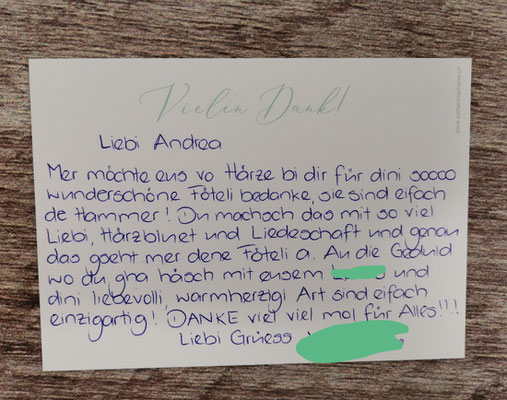 Vielen Dank!
Liebi Andrea
Mer möchte eus vo Härze bi dir für dini soooo
wunderschöne Föteli bedanke, sie sind eifach
de Hammer! Du machsch das mit so viel
Liebi, Härzbluet und Liedeschaft und genau
das gseht mer dene Föteli a. Au die Geduld
wo du gha häsch mit eusem und
dini liebevolli, warmherzigi Art sind eifach
einzigartig! DANKE viel viel mol für Alles!!!
Liebi Grüess
www.kartenmacherei.ch